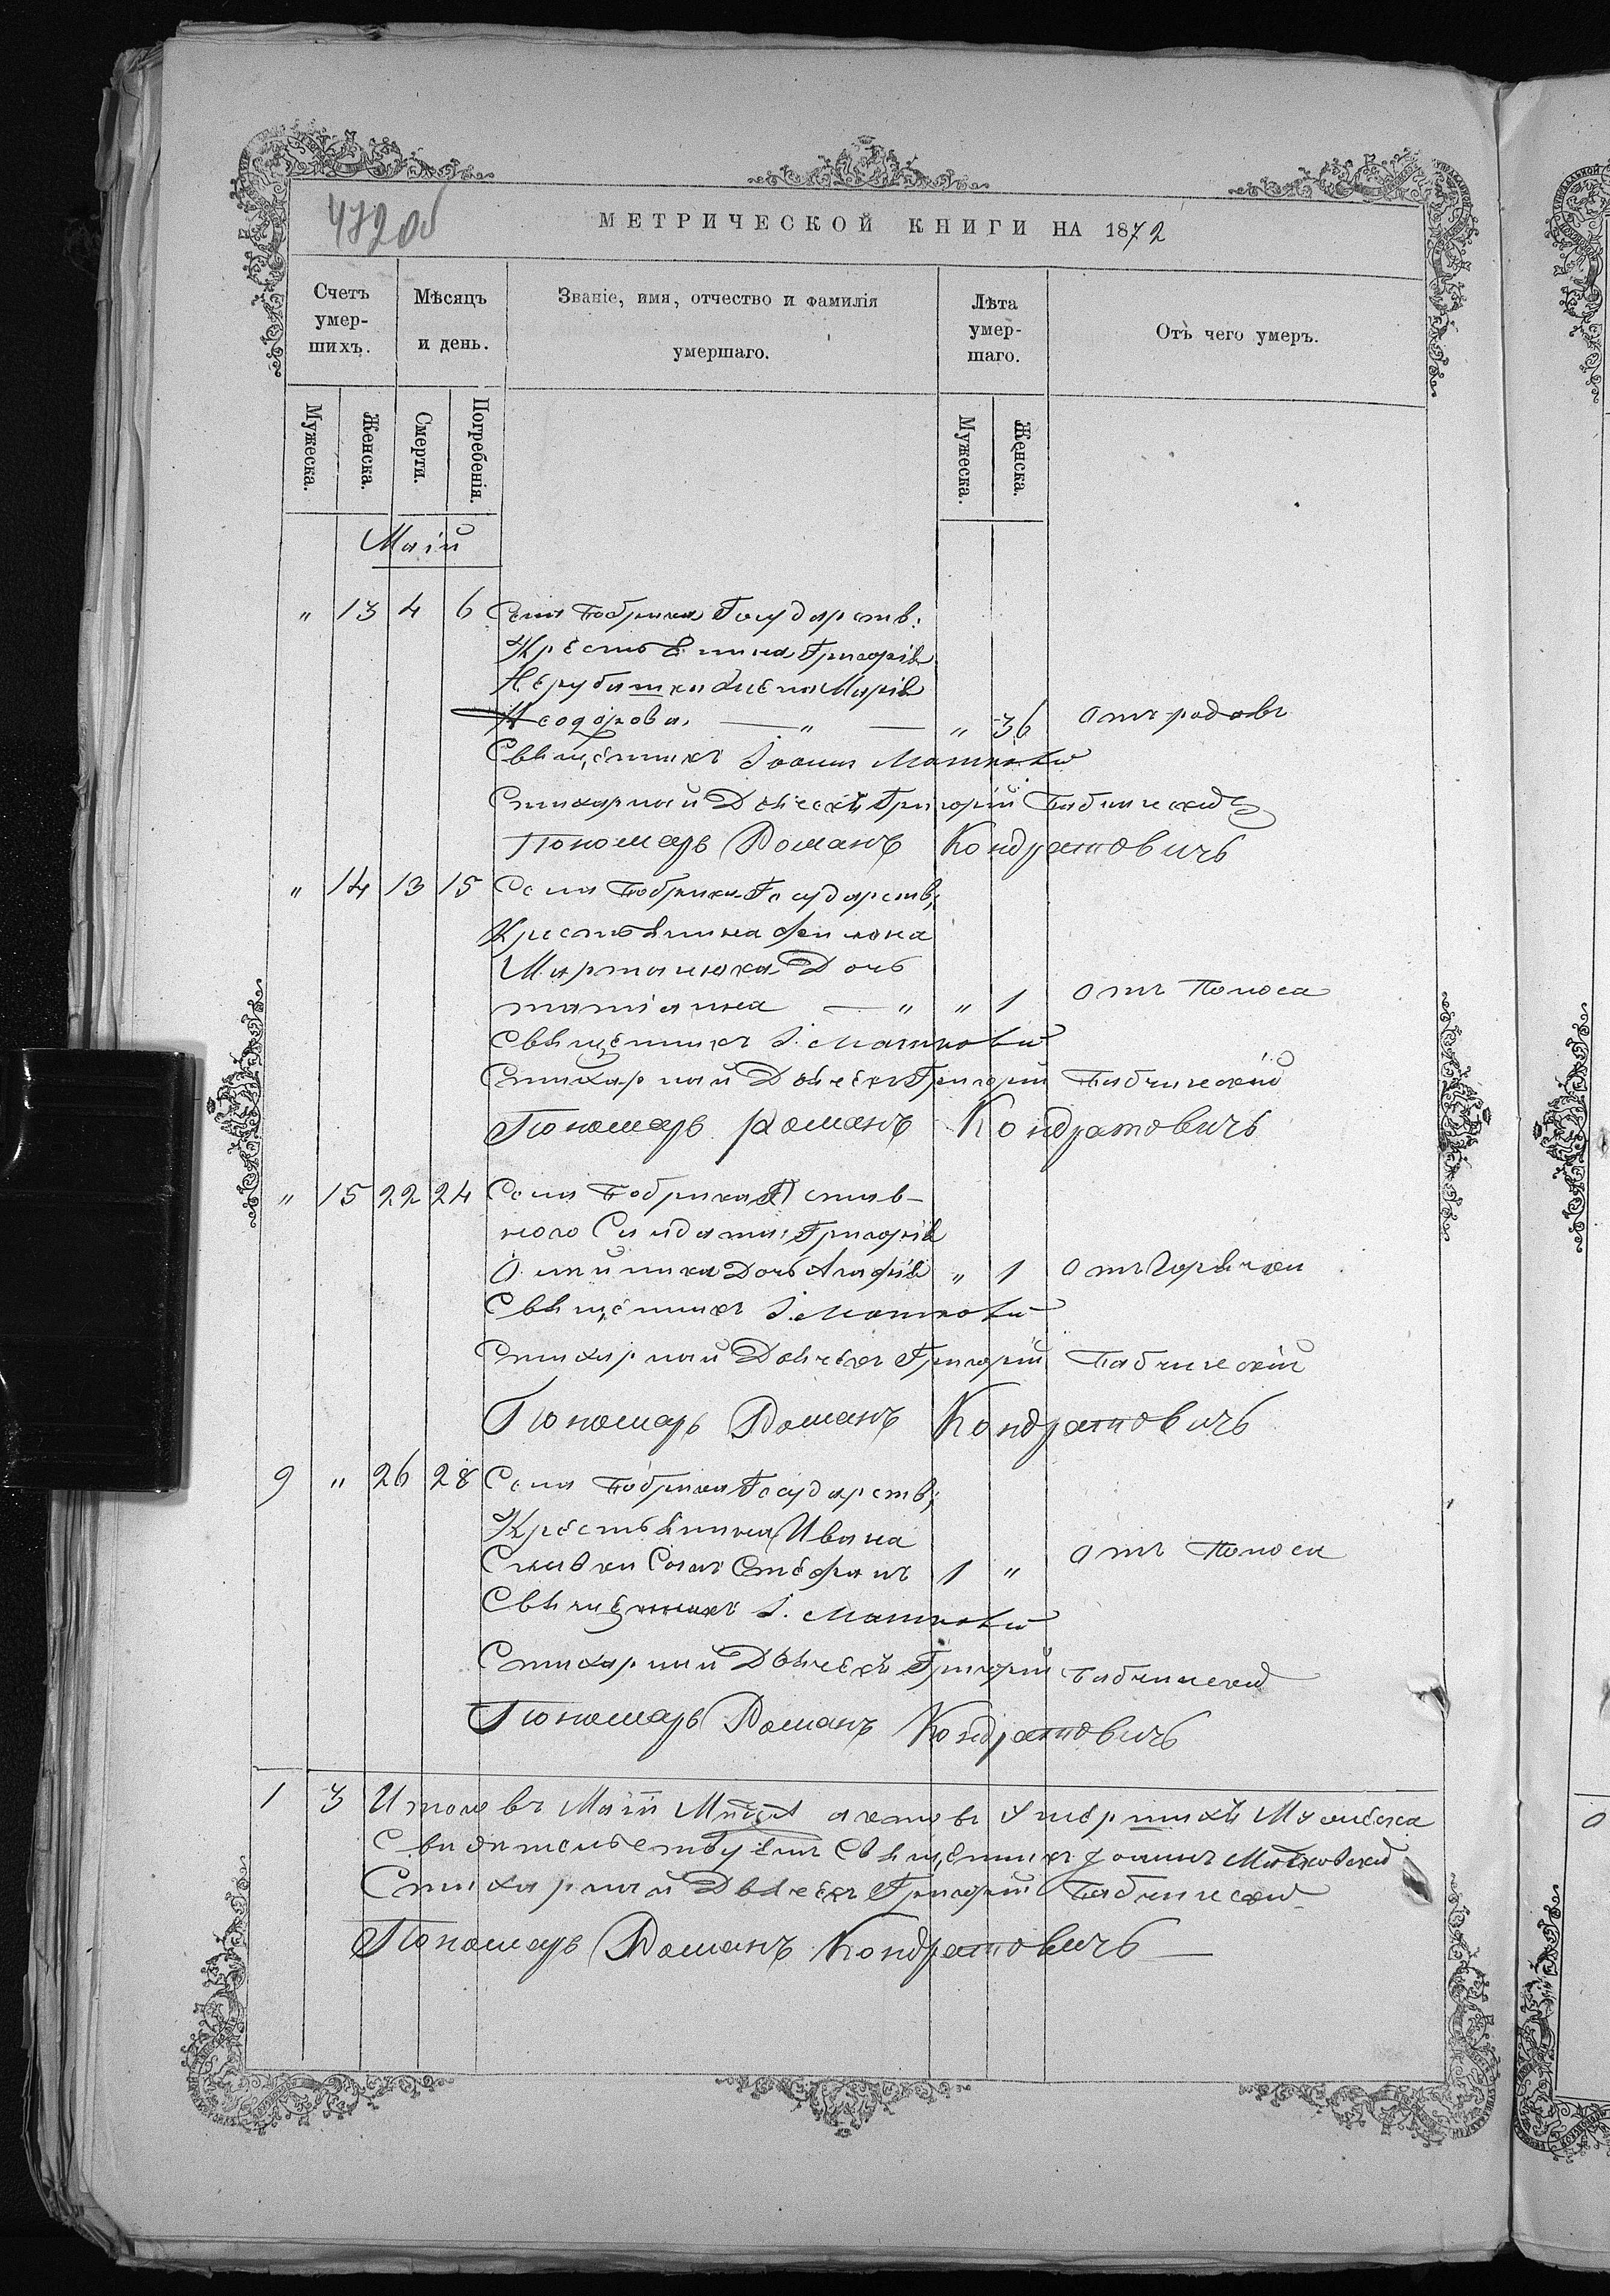 472об
МЕТРИЧЕСКОЙ КНИГИ НА 1872
Счетъ умер-шихъ.
Мѣсяцъ и день.
Званіе, имя, отчество и фамилія умершаго.
Лѣта умер-шаго.
Отъ чего умеръ.
Мужеска.
Женска.
Смерти.
Погребенія.
Мужеска.
Женска.
Маій
" 13 4 6 Села Бобрика Государств:
Крестьянина Григорія
Нерубашка Жена Марія
Ѳеодорова. — " — " 36 Отъ родовъ
Священникъ Іоаннъ Матковскій
Стихарный Дьячекъ Григорій Бабчинскій
Пономарь Романъ Кондратовичъ
" 14 13 15 Села Бобрика Государств;
Крестьянина Филона
Мартанюка Дочь
татіанна — " " 1 Отъ Поноса
Священникъ І. Матковскій
Стихарный Дьячекъ Григорій Бабчинскій
Пономарь Романъ Кондратовичъ
" 15 22 24 Села Бобрика
ного Солдата Григорія
дочь Агафія " 1 Отъ Горячки
Священникъ І. Матковскій
Стихарный Дьячекъ Григорій Бабчинскій
Пономарь Романъ Кондратовичъ
9 " 26 28 Села Бобрика Государств;
Крестьянина Ивана
Сынъ Стефанъ 1 " Отъ Поноса
Священникъ І. Матковскій
Стихарный Дьячекъ Григорій Бабчинскій
Пономарь Романъ Кондратовичъ
1 3 Итого въ Маіи Мцѣ актовъ Умершихъ Мужеска
Свидительствуемъ Священникъ Іоаннъ Матковскій
Стихарный Дьячекъ Григорій Бабчинскій
Пономарь Романъ Кондратовичъ